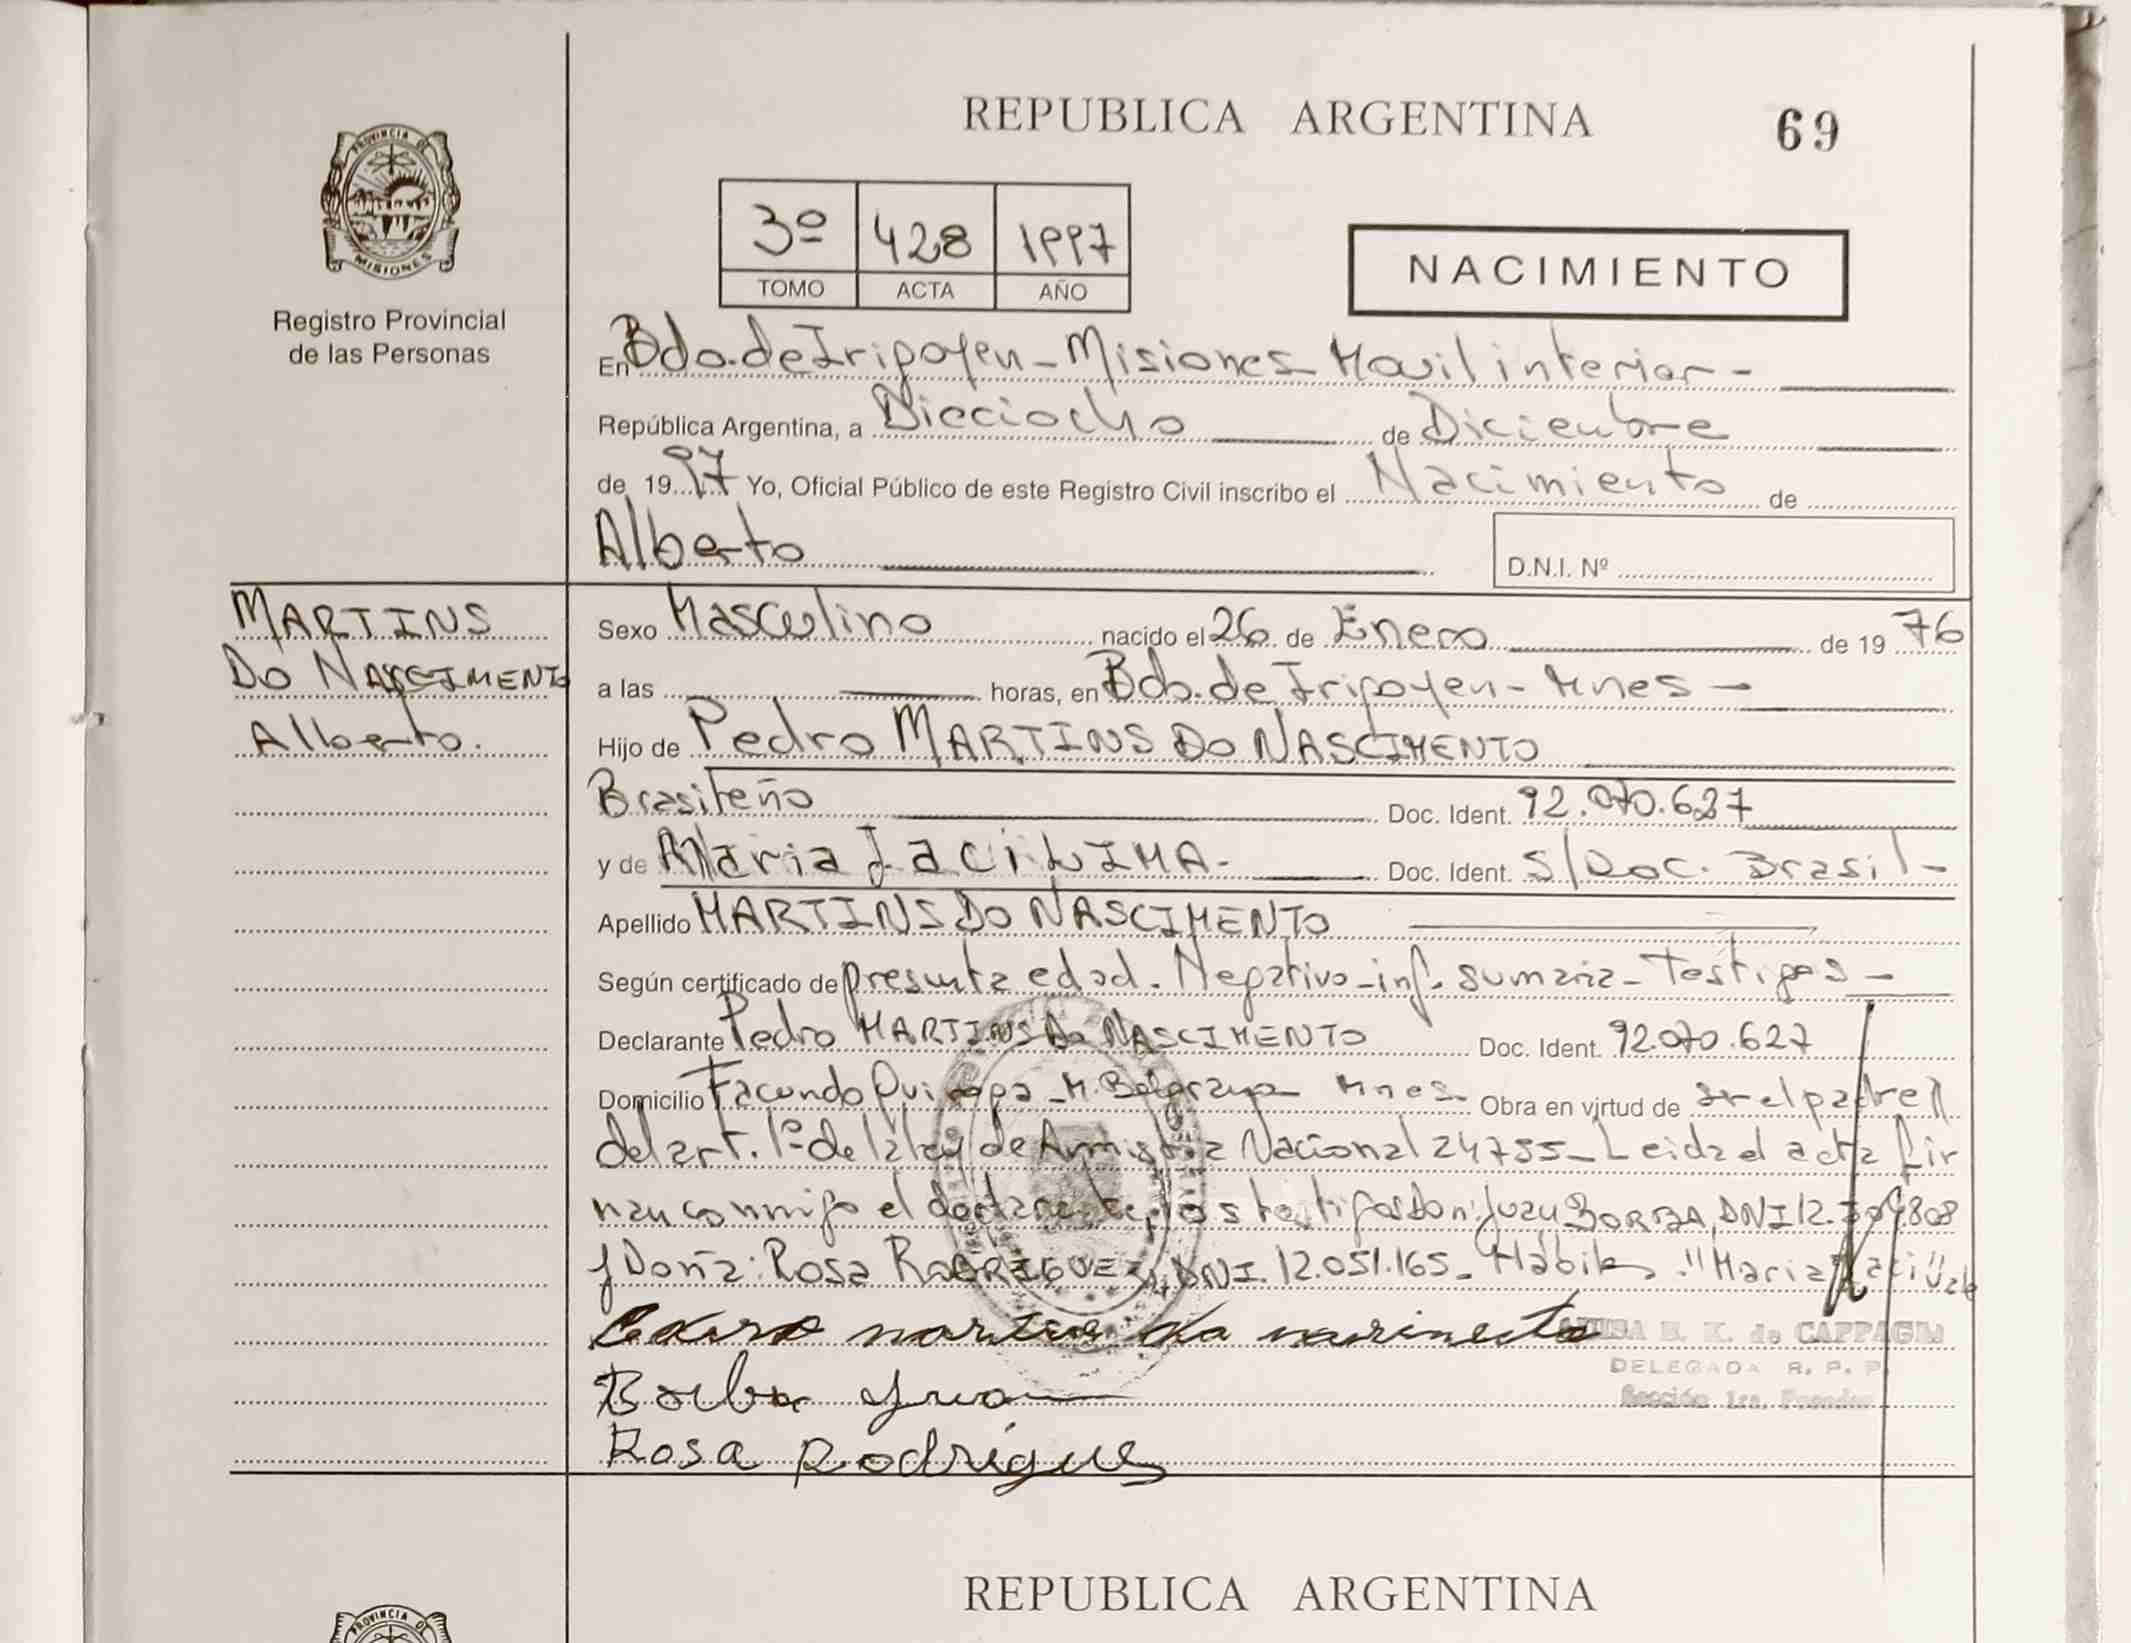 REPUBLICA ARGENTINA
69
PROVINCIA DE
MISIONES
Registro Provincial
de las Personas
3º 428 1997
TOMO ACTA AÑO
NACIMIENTO
En Bdo. de Iripoyen - Misiones Movil interior -
República Argentina, a Dieciocho de Diciembre
de 1997 Yo, Oficial Público de este Registro Civil inscribo el Nacimiento de
Alberto
D.N.I. Nº
MARTINS
DO NASCIMENTO
Alberto.
Sexo Masculino nacido el 26 de Enero de 1976
a las horas, en Bdo. de Iripoyen - Mnes -
Hijo de Pedro MARTINS DO NASCIMENTO
Brasileño Doc. Ident. 92.070.627
y de Maria Jaci LIMA - Doc. Ident. S/Doc. Brasil -
Apellido MARTINS DO NASCIMENTO
Según certificado de presunta edad. Negativo - inf. sumaria - Testigos -
Declarante Pedro MARTINS DO NASCIMENTO Doc. Ident. 92.070.627
Domicilio Facundo Quiroga - M. Belgrano Mnes. Obra en virtud de ser el padre y
del art. 1º de la ley de Amnistia Nacional 24755 - Leida el acta fir
man conmigo el declarante, los testigos Don: Juan BORBA, DNI 12. 808
y Doña: Rosa RODRIGUEZ, DNI. 12.051.165 - Hábiles. "Maria Jaci" vale
Borba Juan
Rosa Rodrigues
E. K. de CAPPAGLI
DELEGADA R. P. P.
Sección 1ra.
REPUBLICA ARGENTINA
PROVINCIA DE